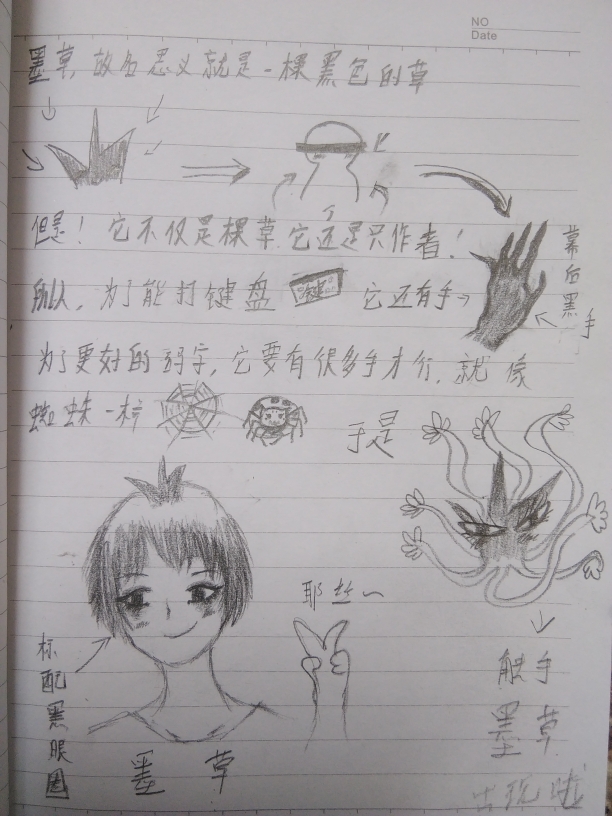 NO
Date
墨草,故名思义就是一棵黑色的草
但是!它不仅是棵草,它还是只作者!
幕后黑手
所以,为了能打键盘 它还有手→
为了更好的码字,它要有很多手才行,就像
蜘蛛一样 于是
耶丝~
标配黑眼圈
触手
墨草
墨草
出现啦!